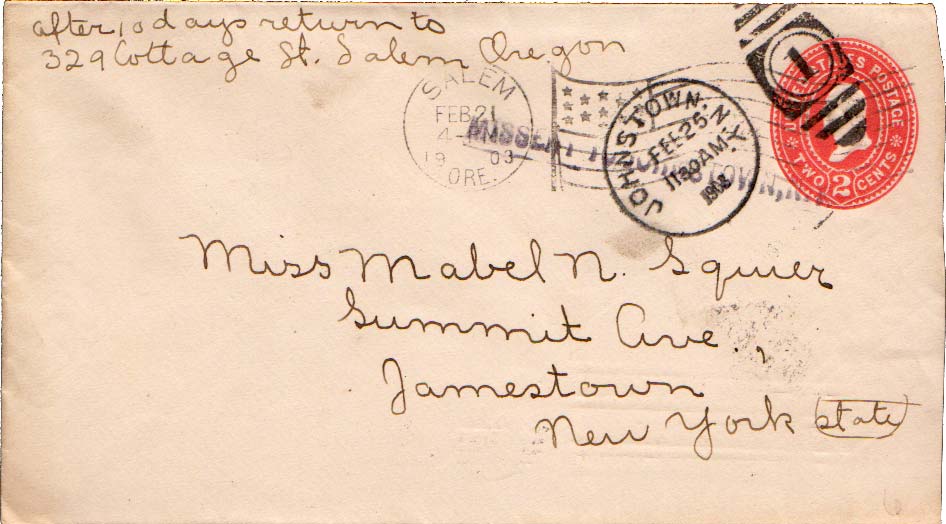 after 10 days return to
329 Cottage St. Salem Oregon
SALEM
FEB 21
4
19 03
ORE.
MISSENT TO JOHNSTOWN, N.Y.
JOHNSTOWN, N.Y.
FEB 25
1130 AM
1903
1
UNITED STATES POSTAGE
TWO 2 CENTS
Miss Mabel N. Squier
Summit Ave.,
Jamestown
New York state